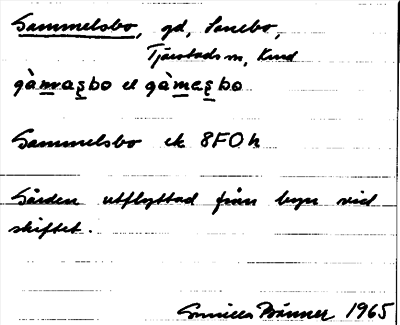 Sammelsbo, gd, Sanebo,
Tjärstads sn, Kind
gàmaʂbo el gàmeʂbo
Sammelsbo ek 8F0h
Gården utflyttad från byn vid
skiftet.
Gunilla Bänner 1965